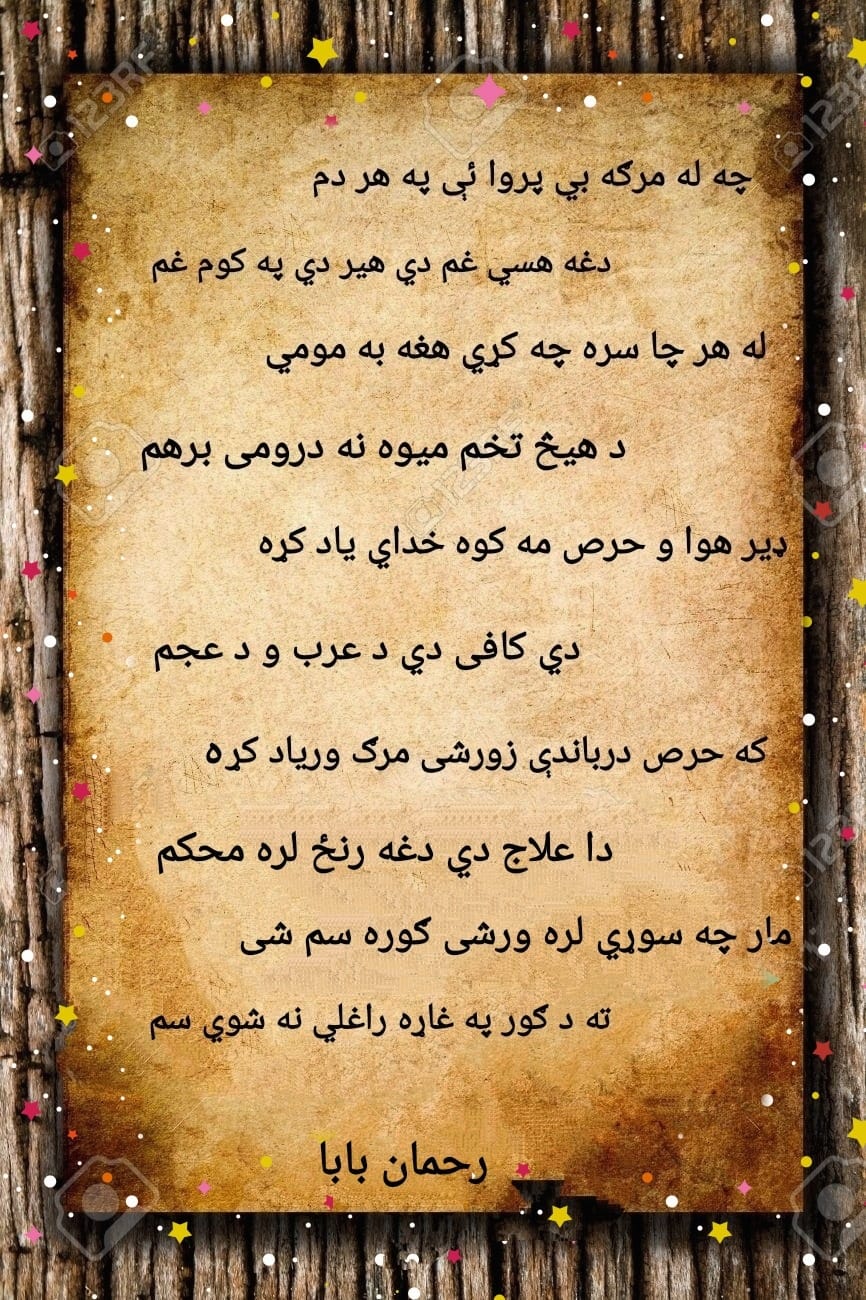 چه له مرګه بي پروا ئې په هر دم
دغه هسي غم دي هير دي په کوم غم
له هر چا سره چه کړي هغه به مومي
د هيڅ تخم ميوه نه درومی برهم
ډير هوا و حرص مه کوه خداي ياد کړه
دي کافی دي د عرب و د عجم
که حرص درباندې زورشی مرګ ورياد کړه
دا علاج دي دغه رنځ لره محکم
مار چه سوړي لره ورشی ګوره سم شی
ته د ګور په غاړه راغلي نه شوي سم
رحمان بابا